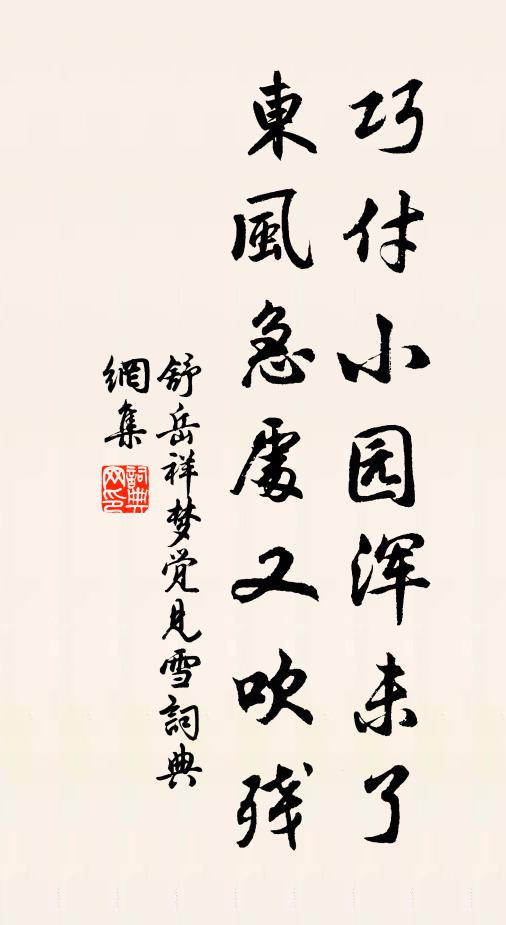 巧付小园浑未了
東風急處又吹残
舒岳祥梦觉見雪詞典
網集
詞典網印